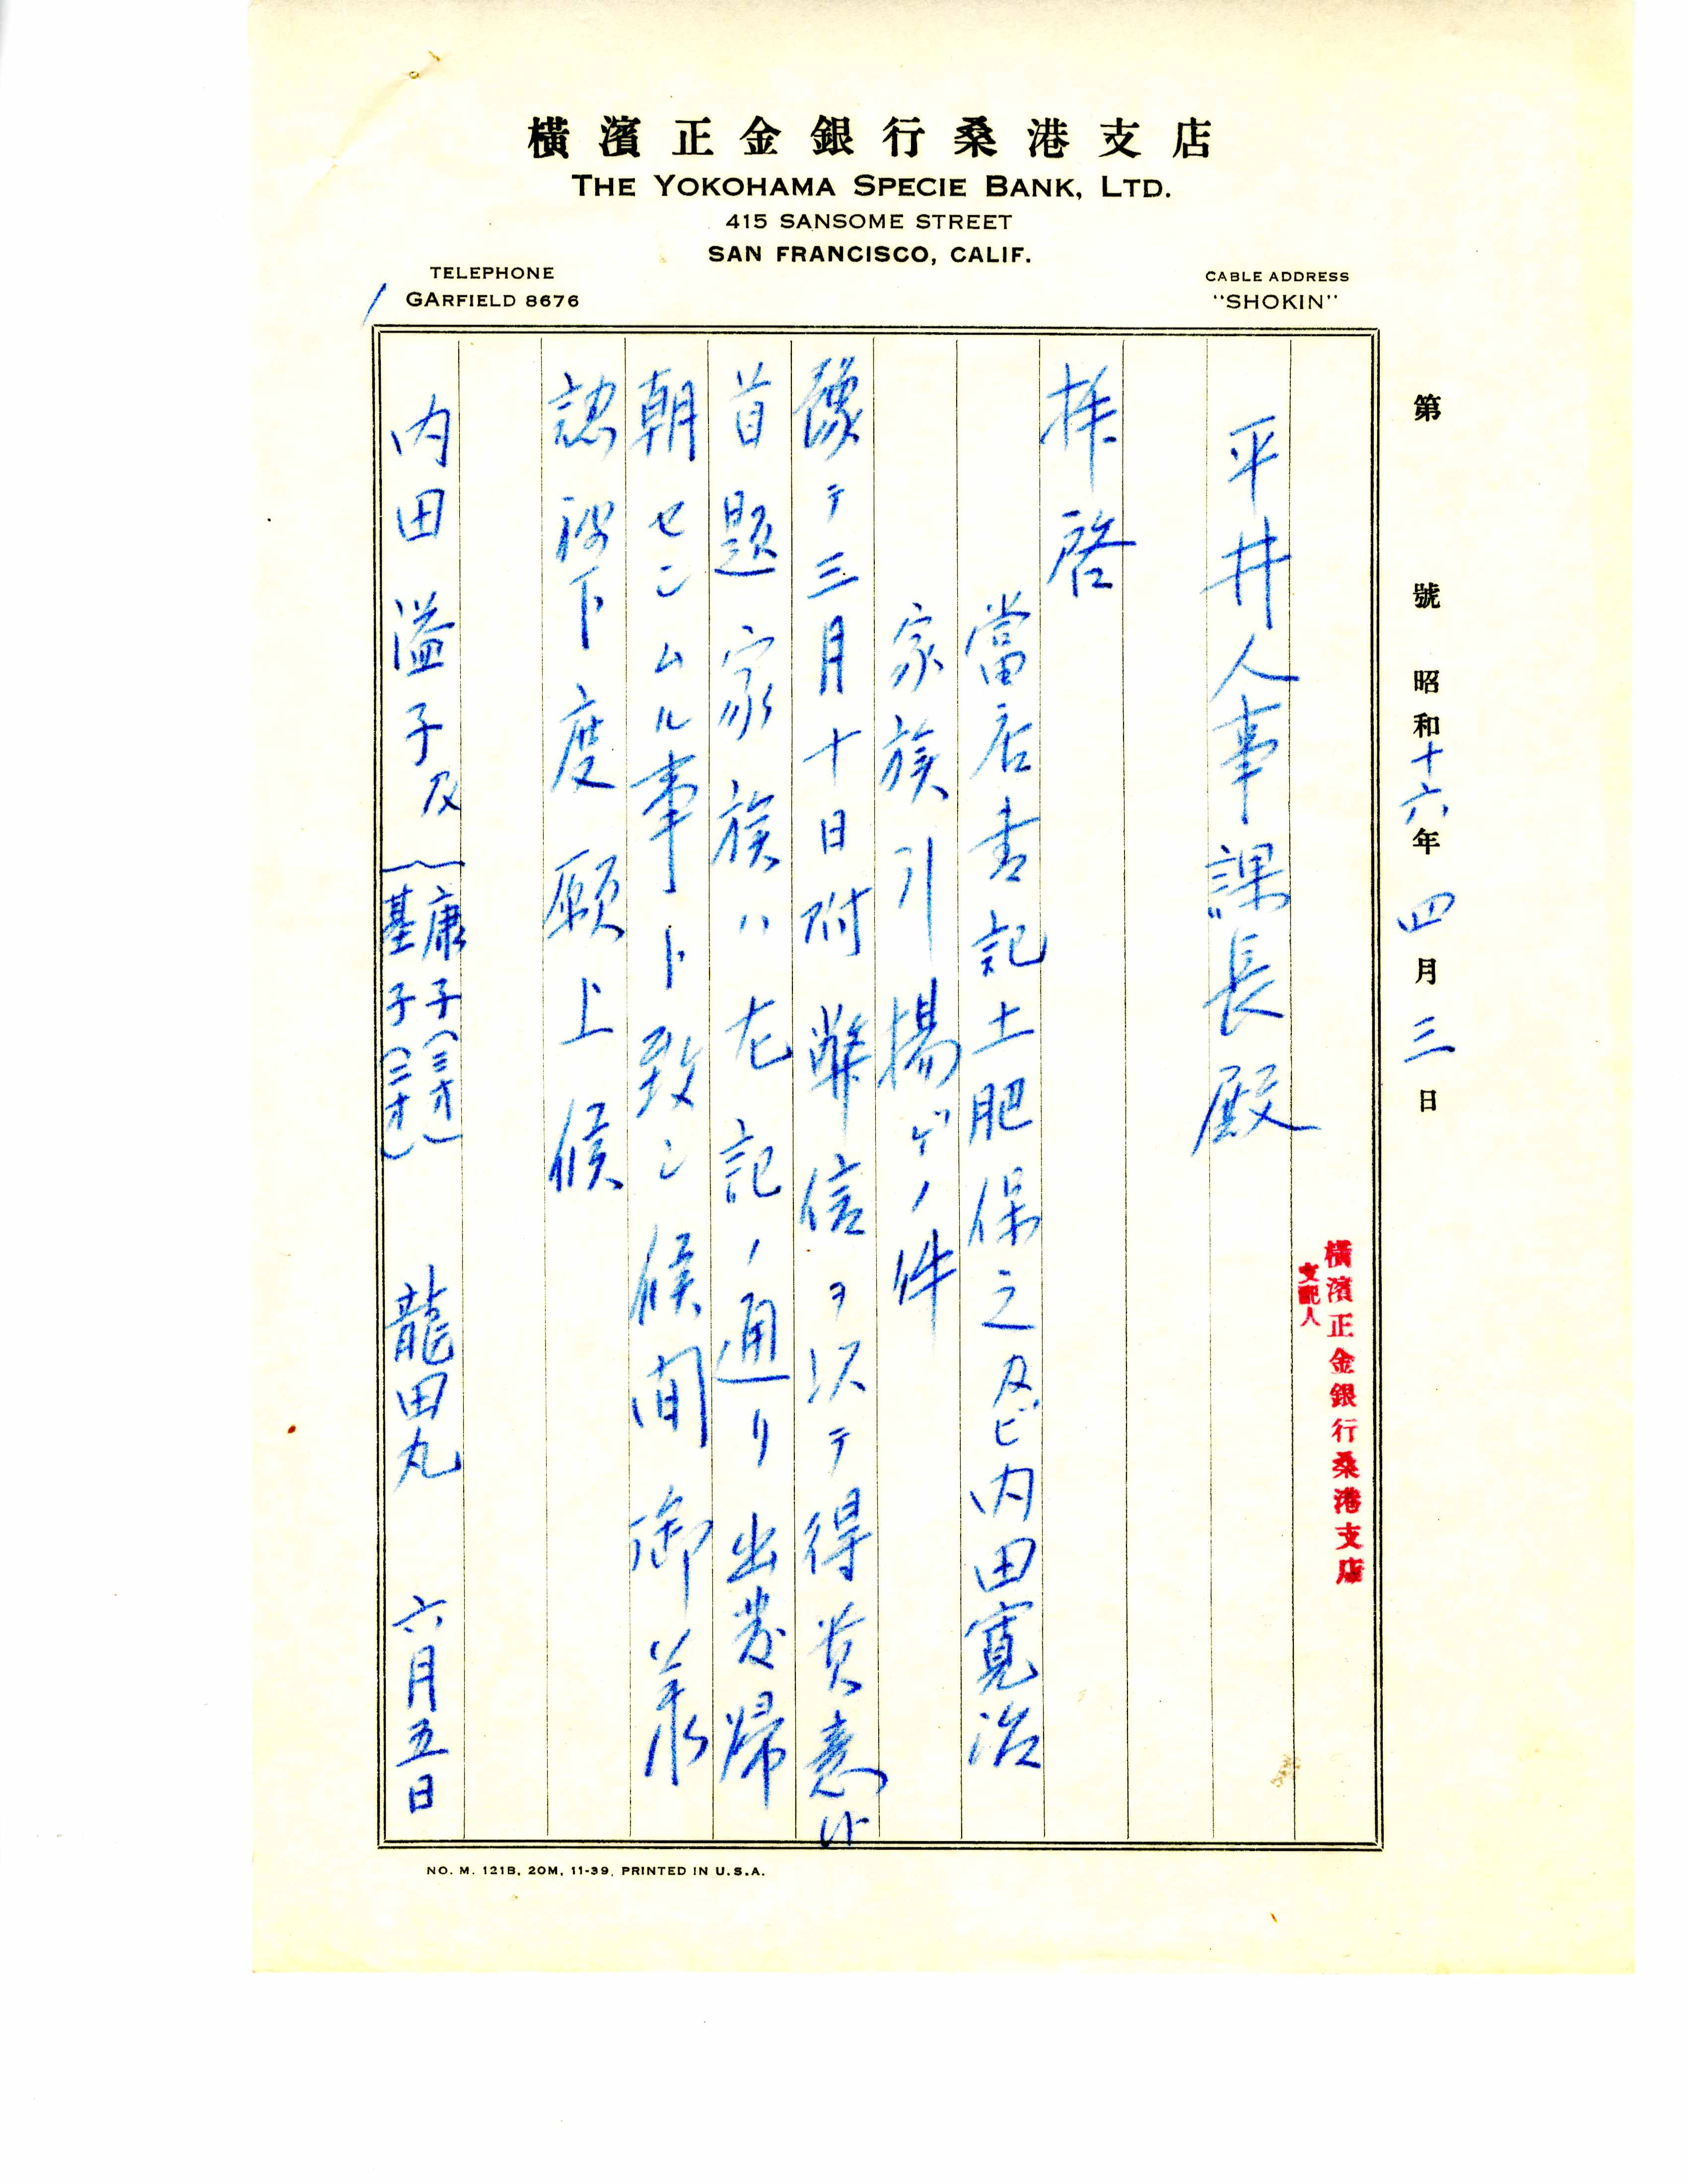 橫濱正金銀行桑港支店
THE YOKOHAMA SPECIE BANK, LTD.
415 SANSOME STREET
SAN FRANCISCO, CALIF.
TELEPHONE
GARFIELD 8676
CABLE ADDRESS
"SHOKIN"
第 號 昭和十六年四月三日
橫濱正金銀行桑港支店
支配人
平井人事課長殿
拝啓
當店書記土肥保之及ビ内田寛治
家族引揚ゲノ件
豫テ三月十日附弊信ヲ以テ得貴意候
首題家族ハ左記ノ通リ出発帰
朝セシムル事ト致シ候間御羕
認被下度願上候
内田溢子及 康子(三才) 基子(二才) 龍田丸 六月五日
NO. M. 121B, 20M, 11-39, PRINTED IN U.S.A.